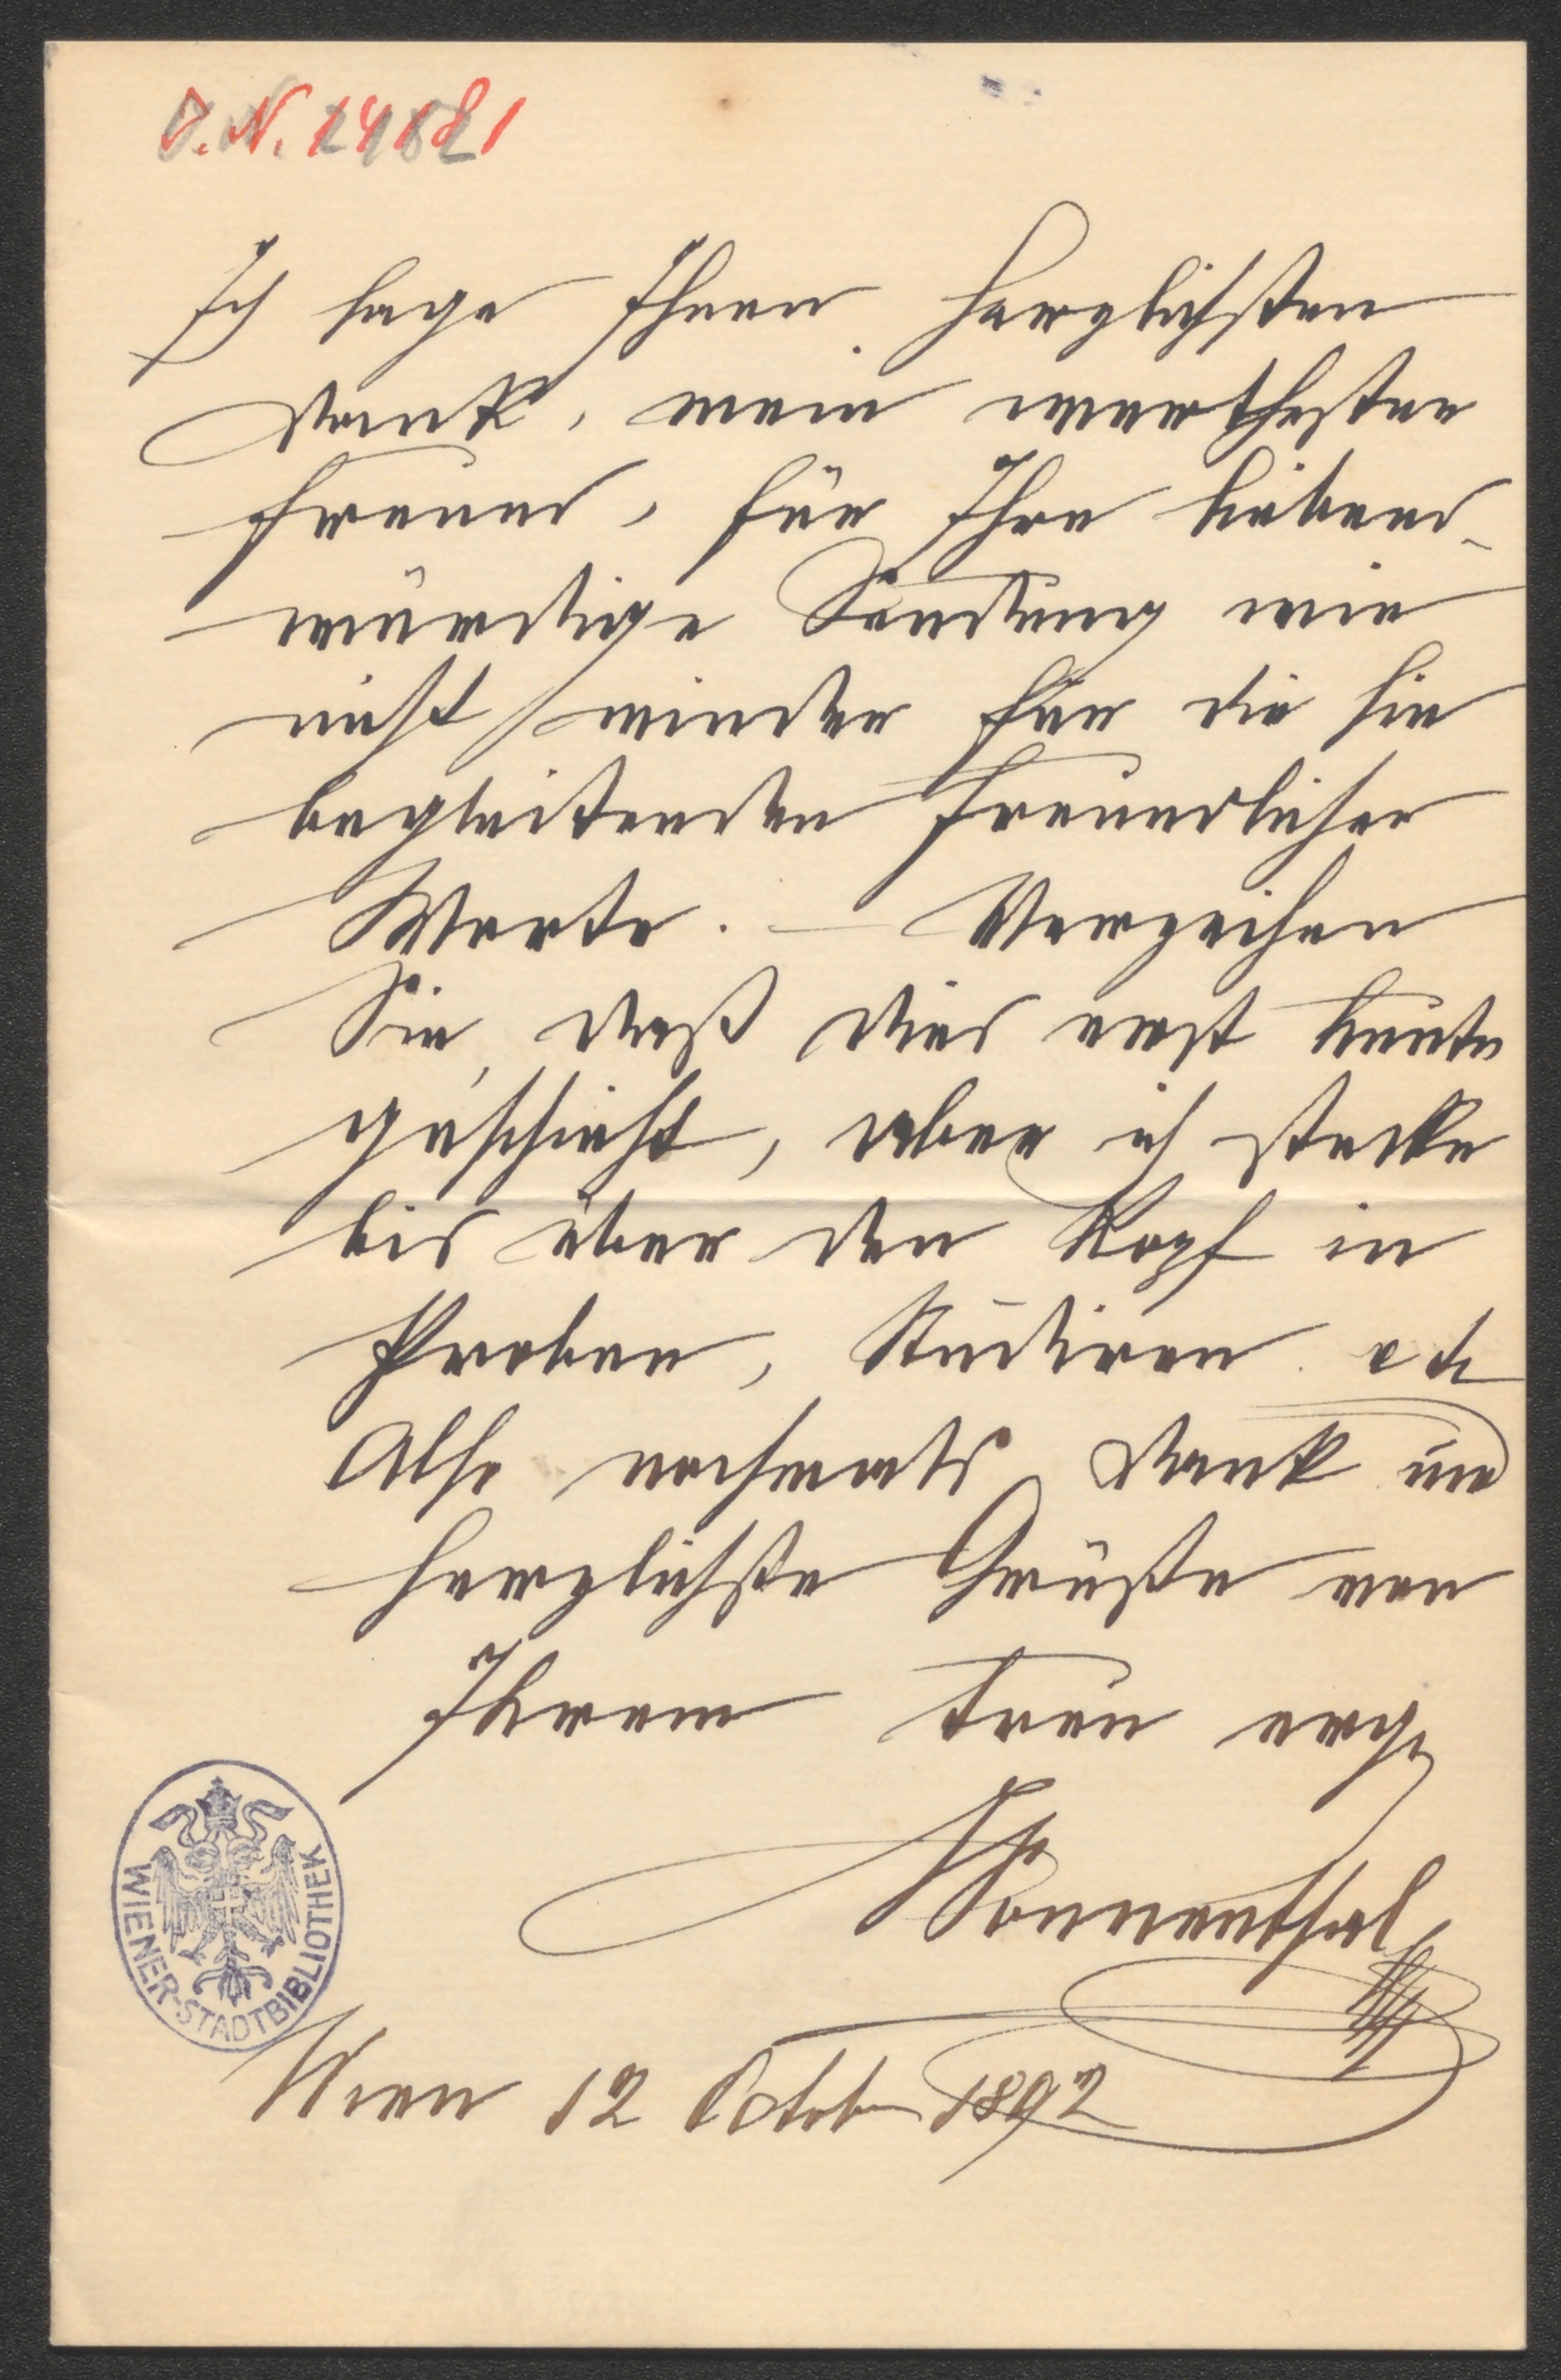 I.N. 24181
Ich sage Ihnen herzlichsten
Dank, mein werthester
Freund, für Ihre liebens-
würdige Sendung wie
nicht minder für die sie
begleitenden freundlichen
Worte. – Verzeihen
Sie, daß dies erst heute
geschieht, aber ich stecke
bis über den Kopf in
Proben, Studiren etc
Also nochmals Dank und
herzlichste Grüße von
Ihrem treu erg.
Sonnenthal
WIENER-STADTBIBLIOTHEK
Wien 12 October 1892